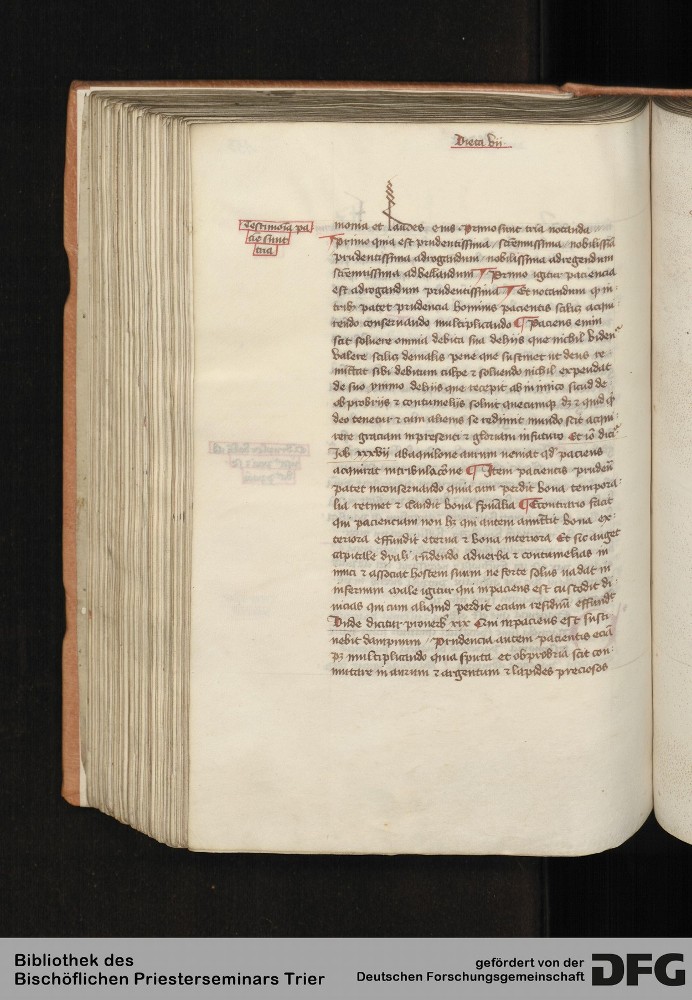 Dieta vii
Testimoia pa
cie sunt
tria
monia et laudes eius · Primo sunt tria notanda
Primo quia est prudentissima / scientissima / nobilissia
prudentissima adrogandum / nobilissima adregendum
scientissima ad bellandum Primo igitur paciencia
est adrogandum prudentissima Et notandum in
trib patet prudencia hominis pacientis scilic acqui
rendo conservando multiplicando Paciens enim
scit solvere omnia debita sua de hiis que nichil viden
valere scilic de malis pene que sustinet ut deus re
mittat sibi debitum culpe et solvendo nichil expendat
de suo ymmo de hiis que recepit ab inimico sicud de
obprobriis et contumeliis solvit quecumq et quid
deo tenetur et cum alienis se redimit mundo scit acqui
rere graciam in presenti et gloriam in futuro Et io dici
Job xxxvii ab aquilone aurum veniat qd paciens
acquirit in tribulacone Item pacientis pruden
patet in conservando quia cum perdit bona tempora
lia retinet et claudit bona spualia Econtrario facit
qui pacienciam non hz qui autem amittit bona ex
teriora effundit eterna et bona interiora Et sic auget
capitale dyaboli rndendo adverba et contumelias in
imici et associat hostem suum ne forte solus vadat in
infernum Male igitur qui inpaciens est custodit di
vicias qui cum aliquid perdit eciam residuu effundit
Unde dicitur proverb xix Qui inpaciens est susti
nebit dampnum / Prudencia autem pacientis ecia
pz multiplicando quia sputa et obprobria scit con
mutare in aurum et argentum et lapides preciosos
Bibliothek des
Bischöflichen Priesterseminars Trier
gefördert von der
Deutschen Forschungsgemeinschaft
DFG